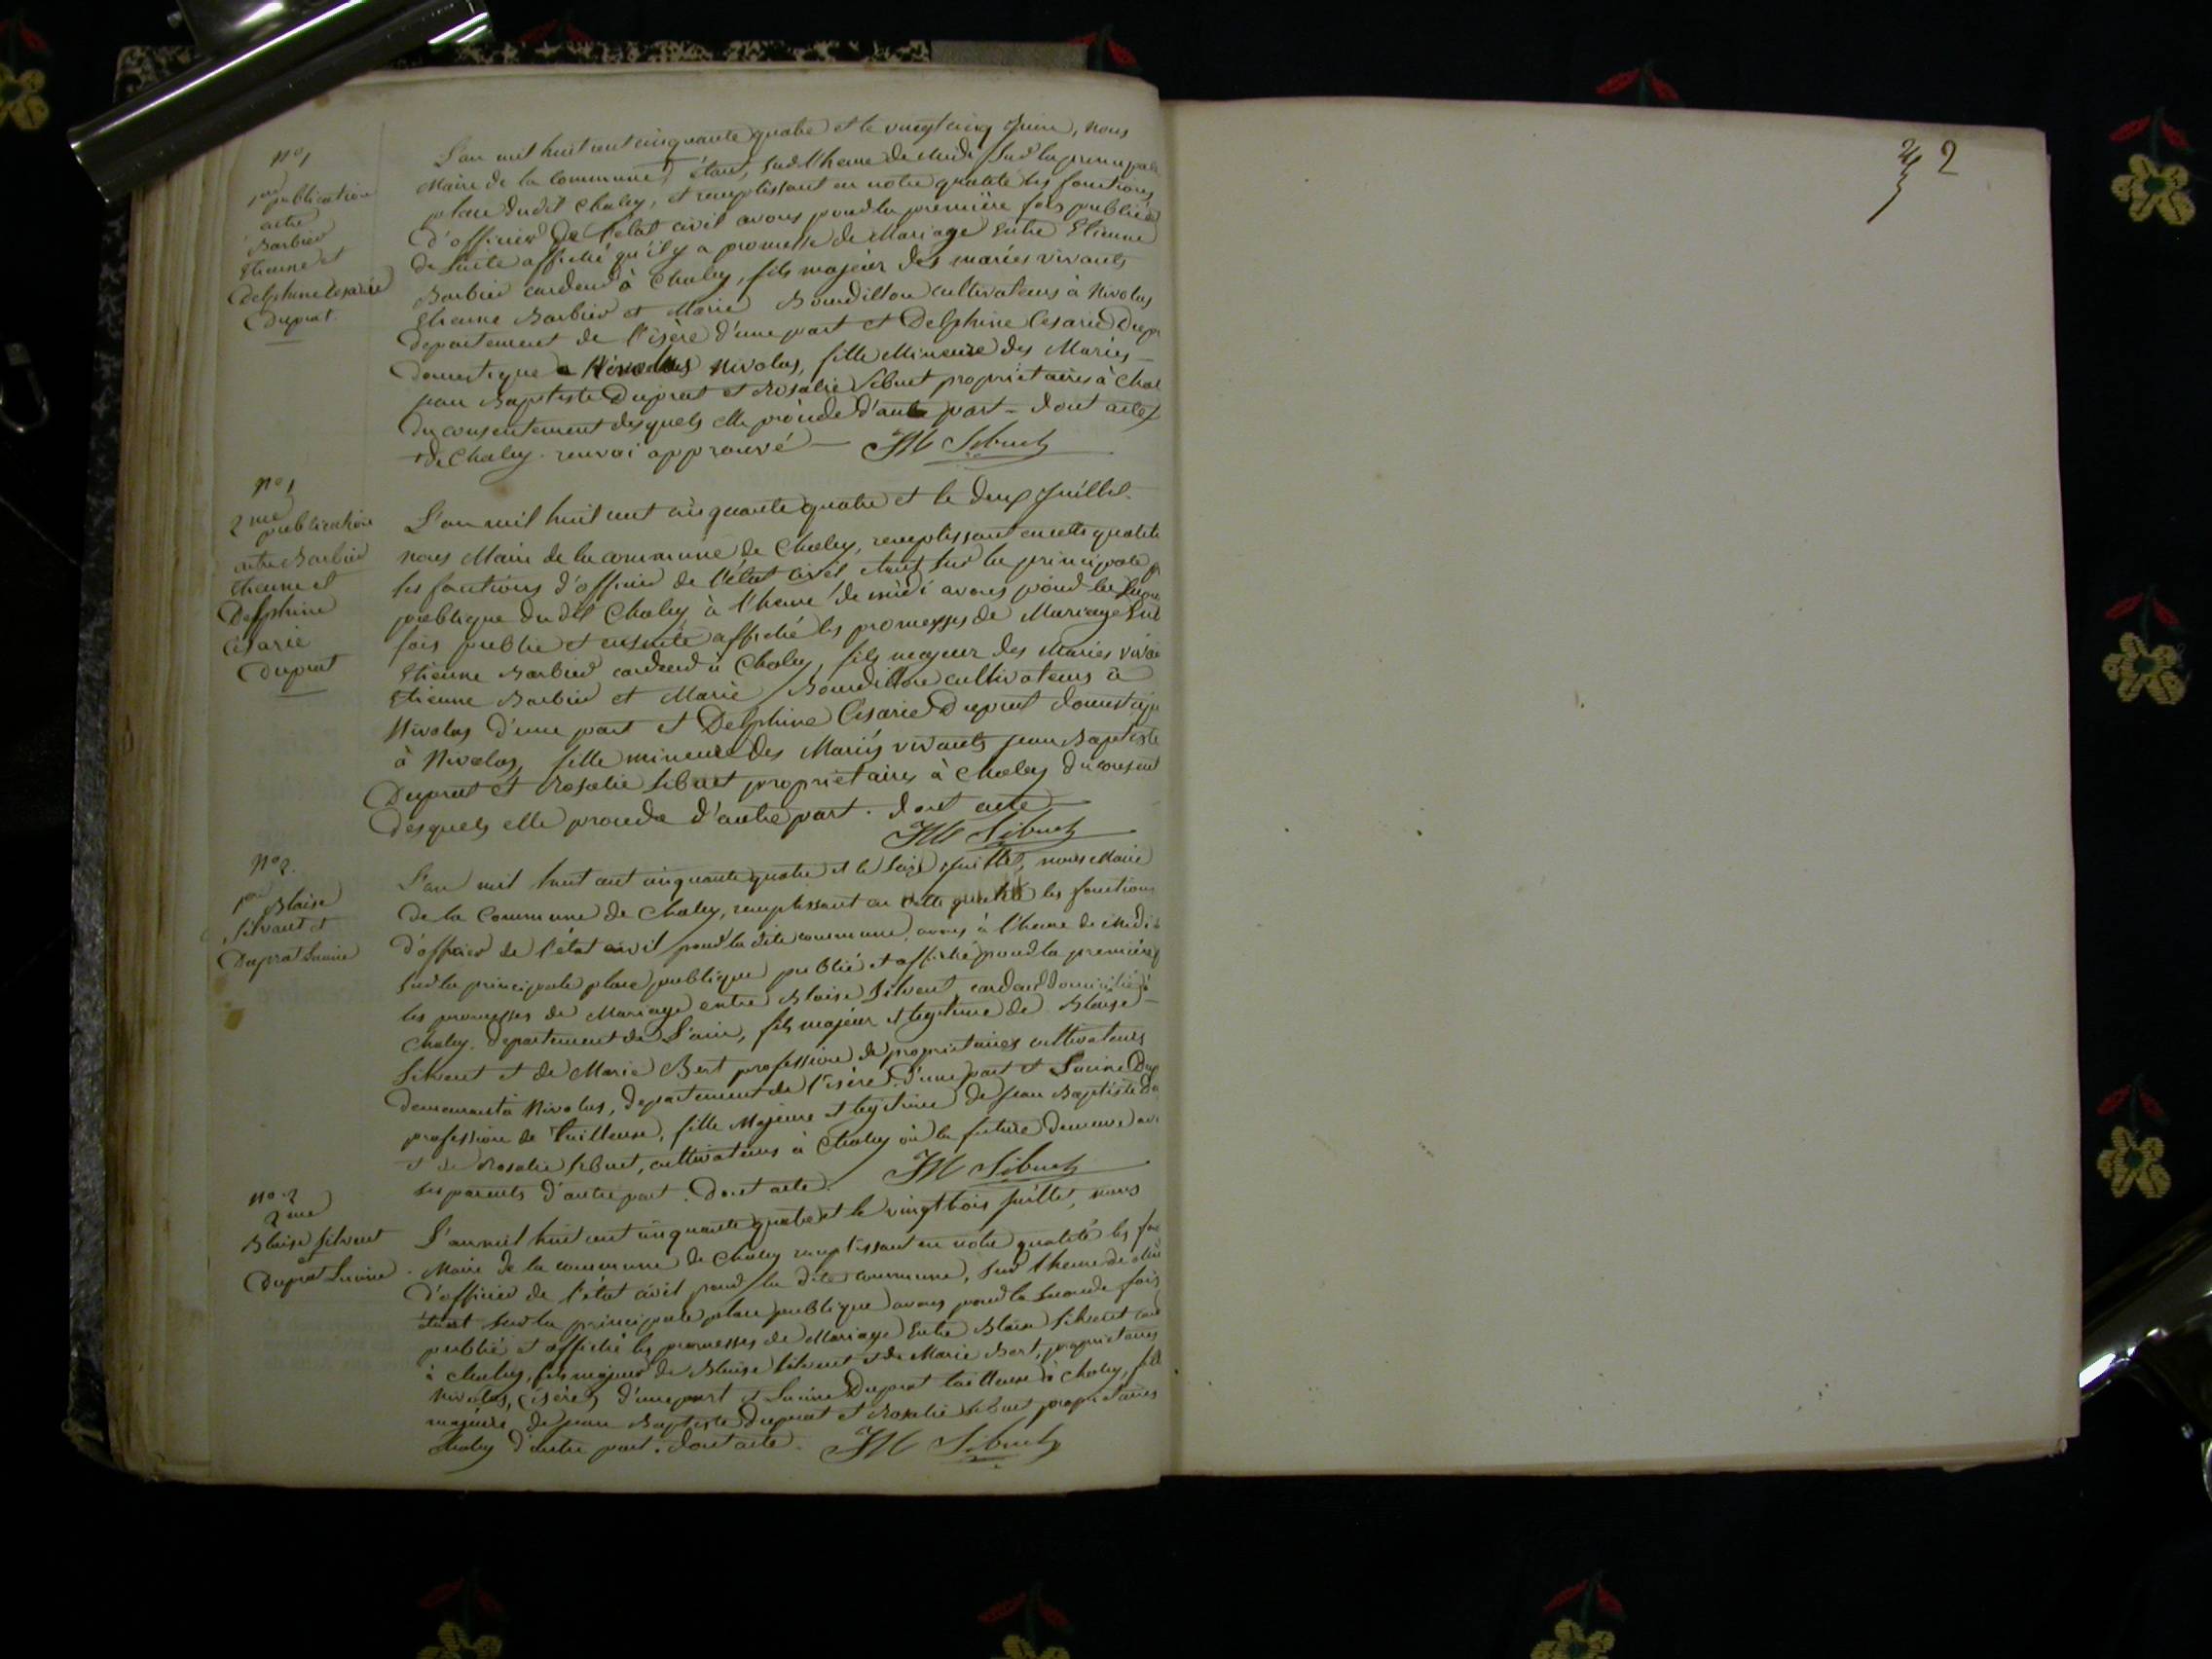 N° 1
1ère publication
entre
Barbier
Etienne et
Delphine Cesarie
Duprat
L'an mil huit cent cinquante quatre et le vingt cinq Juin, nous
Maire de la commune+ étant, sur l'heure de Midi sur la principale
place dudit Chaley, et remplissant en notre qualité les fonctions
d'officier de l'etat civil avons pour la première fois publié et
de suite affiché qu'il y a promesse de Mariage Entre Etienne
Barbier cardeur à Chaley, fils majeur des mariés vivants
Etienne Barbier et Marie Bourdillon cultivateurs à Nivolas
departement de l'isère d'une part et Delphine Cesarie Dupr
domestique a Nivolas, fille Mineure des Mariés
jean Baptiste Duprat et Rosalie Sibuet propriétaires à Chal
du consentement desquels elle procède d'autre part - dont acte
+ de Chaley. renvoi approuvé JM Sibuet
N° 1
2me
publication
entre Barbier
Etienne et
Delphine
Césarie
Duprat
L'an mil huit cent cinquante quatre et le deux Juillet.
nous Maire de la commune de Chaley, remplissant en cette qualité
les fonctions d'officier de l'état civil étant sur la principale p
publique du dit Chaley à l'heure de midi avons pour la
fois publié et ensuite affiché les promesses de Mariage Ent
Etienne Barbier cardeur à Chaley, fils majeur des Mariés viva
Etienne Barbier et Marie Bourdillon cultivateurs à
Nivolas d'une part et Delphine Césarie Duprat domestiqu
à Nivolas, fille mineure des Mariés vivants jean Baptiste
Duprat et Rosalie Sibuet propriétaires à Chaley du consent
desquels elle procède d'autre part. dont acte
JM Sibuet
N° 2.
1ère Blaise
Silvent et
Duprat Lucine
L'an mil huit cent cinquante quatre et le seize juillet, nous Maire
de la Commune de Chaley, remplissant en cette qualité les fonctions
d'officier de l'état civil pour la dite commune, avons à l'heure de Midi
sur la principale place publique publié et affiché pour la première f
les promesses de Mariage entre Blaise Silvent, cardeur domicilié à
Chaley, departement de L'ain, fils majeur et légitime de Blaise
Silvent et de Marie Bert profession de propriétaires cultivateurs
demeurant à Nivolas, departement de l'isère d'une part et Lucine Dup
profession de Tailleuse, fille Majeure et légitime de jean Baptiste Du
et de Rosalie Sibuet, cultivateurs à Chaley où la future demeure av
ses parents d'autre part. Dont acte. JM Sibuet
N° 2
2me
Blaise Silvent
et
Duprat Lucine
L'an mil huit cent cinquante quatre et le vingt trois juillet, nous
Maire de la commune de Chaley remplissant en notre qualité les fon
d'officier de l'état civil pour la dite commune, sur l'heure de Mi
étant sur la principale place publique avons pour la seconde fois
publié et affiché les promesses de Mariage Entre Blaise Silvent car
à Chaley, fils majeur de Blaise Silvent et de Marie Bert, propriétaires
Nivolas, (isère) d'une part et Lucine Duprat tailleuse à Chaley, fill
majeure de jean Baptiste Duprat et Rosalie Sibuet propriétaires
Chaley d'autre part. dont acte. JM Sibuet
2